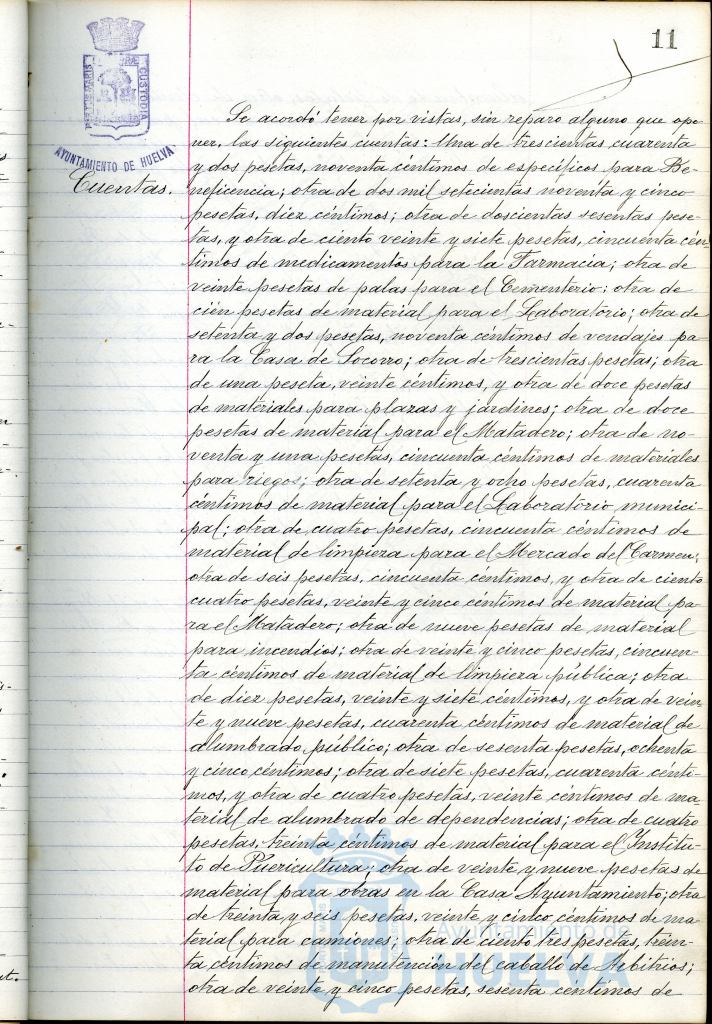 11
PORTUS MARIS
CUSTODIA
AYUNTAMIENTO DE HUELVA
Cuentas.
Se acordó tener por vistas, sin reparo alguno que opo-
ner, las siguientes cuentas: Una de trescientas cuarenta
y dos pesetas, noventa céntimos de específicos para Be-
neficencia; otra de dos mil setecientas noventa y cinco
pesetas, diez céntimos; otra de doscientas sesenta pese-
tas, y otra de ciento veinte y siete pesetas, cincuenta cén-
timos de medicamentos para la Farmacia; otra de
veinte pesetas de palas para el Cementerio; otra de
cien pesetas de material para el Laboratorio; otra de
setenta y dos pesetas, noventa céntimos de vendajes pa-
ra la Casa de Socorro; otra de trescientas pesetas; otra
de una peseta, veinte céntimos, y otra de doce pesetas
de materiales para plazas y jardines; otra de doce
pesetas de material para el Matadero; otra de no-
venta y una pesetas, cincuenta céntimos de materiales
para riegos; otra de setenta y ocho pesetas, cuarenta
céntimos de material para el Laboratorio munici-
pal; otra de cuatro pesetas, cincuenta céntimos de
material de limpieza para el Mercado del Carmen;
otra de seis pesetas, cincuenta céntimos, y otra de ciento
cuatro pesetas, veinte y cinco céntimos de material pa-
ra el Matadero; otra de nueve pesetas de material
para incendios; otra de veinte y cinco pesetas, cincuen-
ta céntimos de material de limpieza pública; otra
de diez pesetas, veinte y siete céntimos, y otra de vein-
te y nueve pesetas, cuarenta céntimos de material de
alumbrado público; otra de sesenta pesetas, ochenta
y cinco céntimos; otra de siete pesetas, cuarenta cénti-
mos, y otra de cuatro pesetas, veinte céntimos de ma-
terial de alumbrado de dependencias; otra de cuatro
pesetas, treinta céntimos de material para el Institu-
to de Puericultura; otra de veinte y nueve pesetas de
material para obras en la Casa Ayuntamiento; otra
de treinta y seis pesetas, veinte y cinco céntimos de ma-
terial para camiones; otra de ciento tres pesetas, trein-
ta céntimos de manutención del caballo de Arbitrios;
otra de veinte y cinco pesetas, sesenta céntimos de
Ayuntamiento de
HUELVA